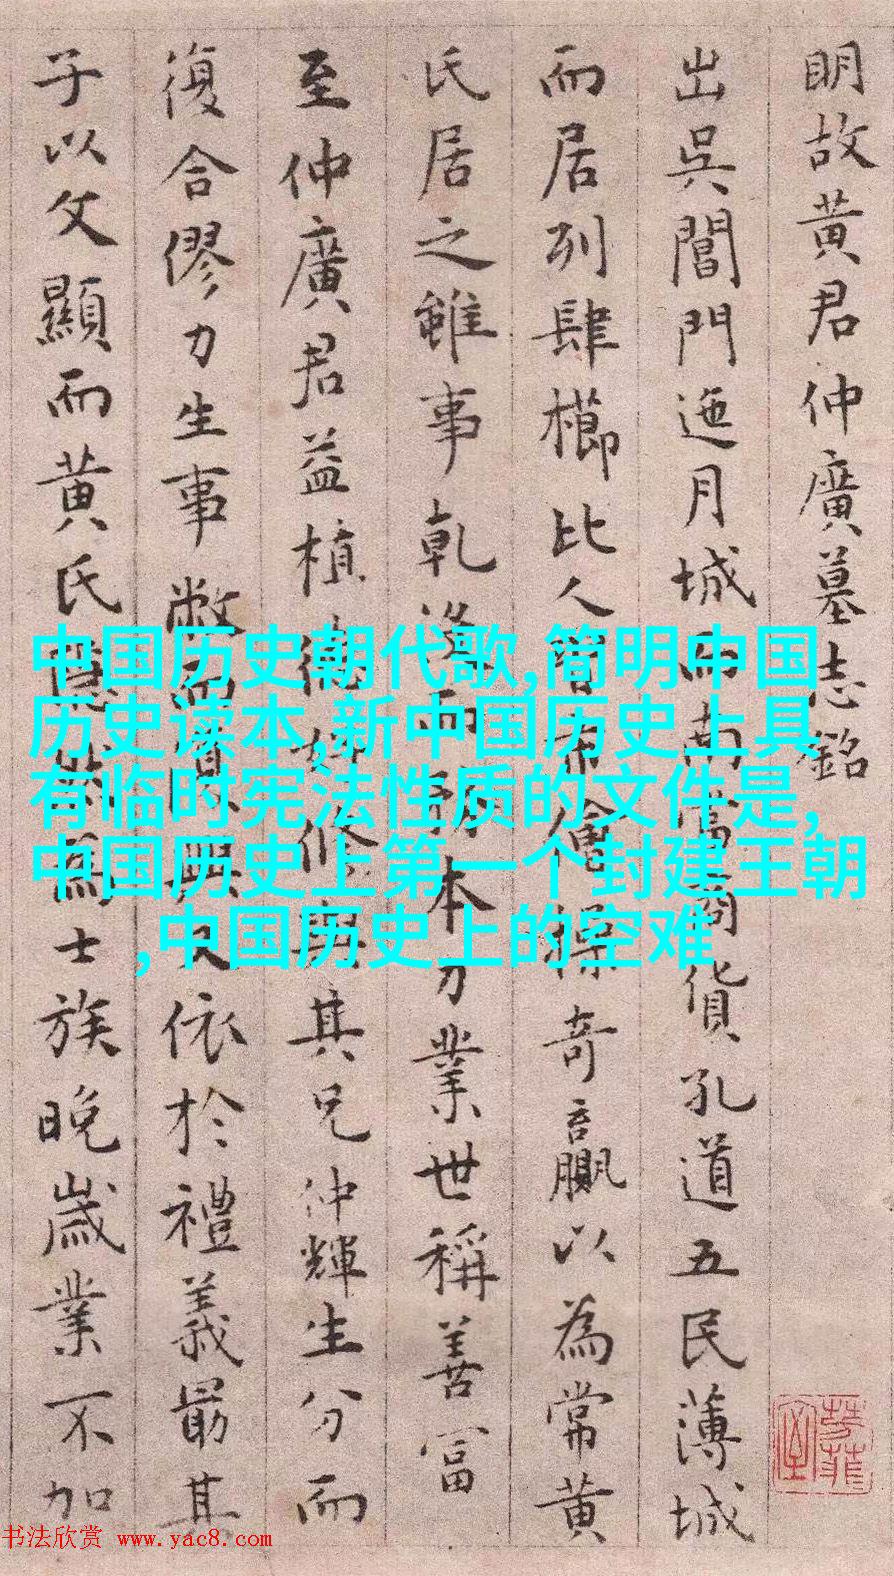 明故黄君仲廣墓志銘
出吳閶門迤月城而南富商貨孔道五民薄城
而居列肆櫛比人操奇贏以為常黄
氏居之雖事乾没而本分業世稱善富
至仲廣君益植德好修與其兄仲輝生分而
復合僇力生事敝而依於禮義最其
子以文顯而黄氏為士族晚歲業不加
中国历史朝代歌,简明中国
历史读本,新中国历史上具
有临时宪法性质的文件是,
中国历史上第一个封建王朝
,中国历史上的空难
书法欣赏 www.yac8.com